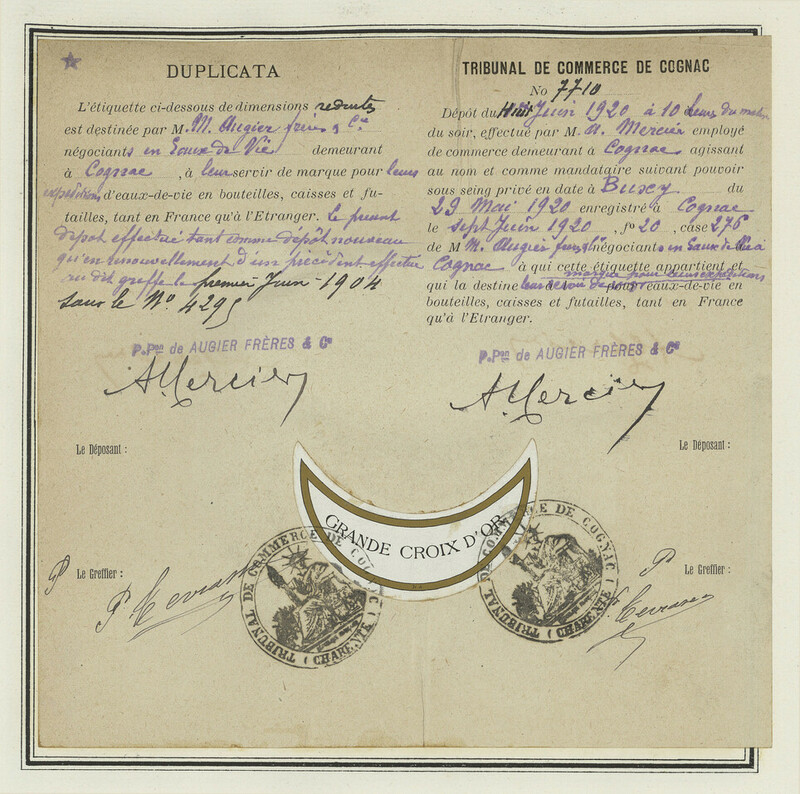 DUPLICATA
L'étiquette ci-dessous de dimensions reduites
est destinée par M. M. Augier frères & Cie
négociants en Eaux de Vie demeurant
à Cognac, à leur servir de marque pour leurs
expéditions d'eaux-de-vie en bouteilles, caisses et fu-
tailles, tant en France qu'à l'Etranger. Le présent
dépôt effectué tant comme dépôt nouveau
qu'en renouvellement d'un précédent effectué
au dit greffe le premier Juin 1904
sous le No 4295
P. Pon de AUGIER FRÈRES & Ce
A. Mercier
Le Déposant :
Le Greffier :
TRIBUNAL DE COMMERCE DE COGNAC
No 7710
Dépôt du Huit Juin 1920 à 10 heures du matin
du soir, effectué par M. A. Mercier employé
de commerce demeurant à Cognac agissant
au nom et comme mandataire suivant pouvoir
sous seing privé en date à du
29 Mai 1920 enregistré à Cognac
le sept Juin 1920, fo 20, case 276
de M. M. Augier frères & Cie négociants en Eaux de Vie à
Cognac à qui cette étiquette appartient et
qui la destine à leur servir de marque pour leurs expéditions d'eaux-de-vie en
bouteilles, caisses et futailles, tant en France
qu'à l'Etranger.
P. Pon de AUGIER FRÈRES & Ce
A. Mercier
Le Déposant :
Le Greffier :
GRANDE CROIX D'OR
TRIBUNAL DE COMMERCE DE COGNAC (CHARENTE)
TRIBUNAL DE COMMERCE DE COGNAC (CHARENTE)